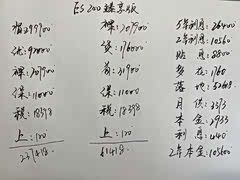 ES 200臻享版
指299900
优:92000
裸:207900
保:11000
税:18398
上:100
237398
裸:207900
贷:176000
首:31900
保:11000
税:18398
上:100
61398
5年利息:26400
2年利息:10560
贴息:8800
多花:1760
落地:
月供:3373
本金:2933
利息:440
2年本金:105600